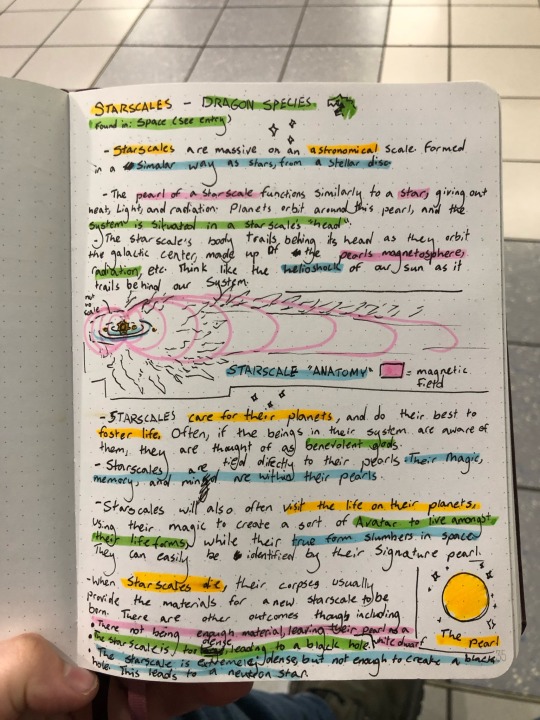 STARSCALES - DRAGON SPECIES
found in: Space (see entry)
- Starscales are massive on an astronomical scale. Formed
in a Simalar way as stars, from a stellar disc.
- The pearl of a starscale functions similarly to a star, giving out
heat, Light, and radiation. Planets orbit around this pearl, and the
system is situated in a starscale's "head".
The starscale's body trails behing its head as they orbit
the galactic center, made up of the pearls magnetosphere,
radiation, etc. Think like the helioshock of our sun as it
trails behind our System.
not to
scale
STARSCALE "ANATOMY" = magnetic
field
- STARSCALES care for their planets, and do their best to
foster life. Often, if the beings in their system are aware of
them, they are thought of as benevolent gods.
- Starscales are tied directly to their pearls. Their magic,
memory, and mind are within their pearls.
- Starscales will also often visit the life on their planets,
Using their magic to create a sort of Avatar to live amongst
their lifeforms, while their true form slumbers in space.
They can easily be identified by their Signature pearl.
- When Starscales die, their corpses usually
provide the materials for a new starscale to be
born. There are other outcomes though including
• There not being enough material, leaving their pearl as a white dwarf
• The starscale is too dense leading to a black hole
• The starscale is extremely dense, but not enough to create a black
hole. This leads to a neutron star.
The Pearl